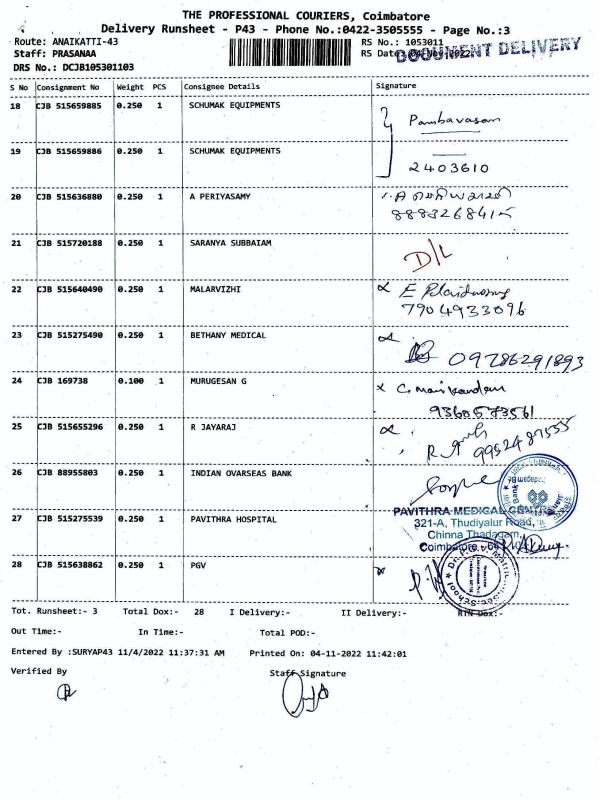 THE PROFESSIONAL COURIERS, Coimbatore
Delivery Runsheet - P43 - Phone No.:0422-3505555 - Page No.:3
Route: ANAIKATTI-43 RS No.: 1053011
Staff: PRASANAA RS Date: 04-Nov-2022
DOCUMENT DELIVERY
DRS No.: DCJB105301103
S No Consignment No Weight PCS Consignee Details Signature
18 CJB 515659885 0.250 1 SCHUMAK EQUIPMENTS Pambavasan
19 CJB 515659886 0.250 1 SCHUMAK EQUIPMENTS 2403610
20 CJB 515636880 0.250 1 A PERIYASAMY
8883268415
21 CJB 515720188 0.250 1 SARANYA SUBBAIAM D/L
22 CJB 515640490 0.250 1 MALARVIZHI
7904933096
23 CJB 515275490 0.250 1 BETHANY MEDICAL 09786291893
24 CJB 169738 0.100 1 MURUGESAN G C. Manikandan
9360573561
25 CJB 515655296 0.250 1 R JAYARAJ 9952487555
26 CJB 88955803 0.250 1 INDIAN OVARSEAS BANK
27 CJB 515275539 0.250 1 PAVITHRA HOSPITAL
PAVITHRA MEDICAL CENTRE
321-A, Thudiyalur Road,
Chinna Thadagam,
Coimbatore
28 CJB 515638862 0.250 1 PGV
Tot. Runsheet:- 3 Total Dox:- 28 I Delivery:- II Delivery:- RTN Dox:-
Out Time:- In Time:- Total POD:-
Entered By :SURYAP43 11/4/2022 11:37:31 AM Printed On: 04-11-2022 11:42:01
Verified By Staff Signature